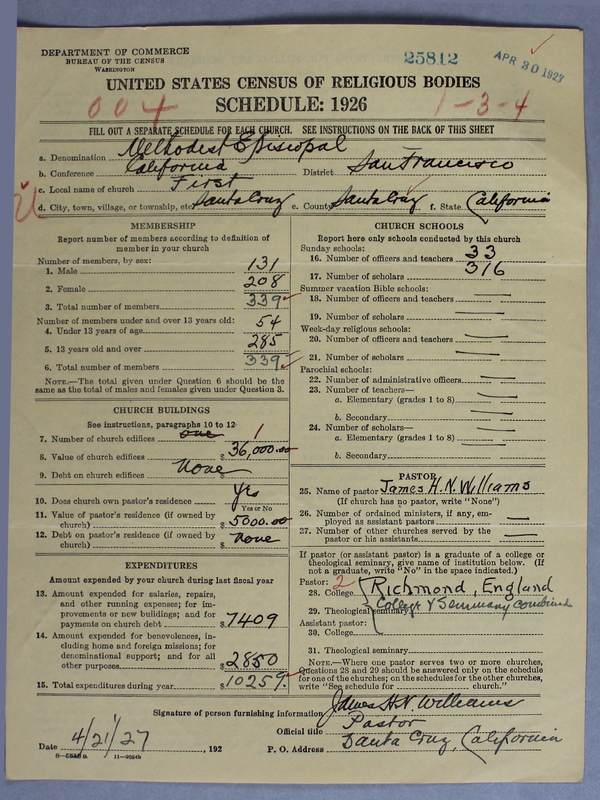 DEPARTMENT OF COMMERCE
BUREAU OF THE CENSUS
WASHINGTON
25812
APR 30 1927
UNITED STATES CENSUS OF RELIGIOUS BODIES
SCHEDULE: 1926
004
1-3-4
FILL OUT A SEPARATE SCHEDULE FOR EACH CHURCH. SEE INSTRUCTIONS ON THE BACK OF THIS SHEET
a. Denomination Methodist Episcopal
b. Conference California District San Francisco
c. Local name of church First
d. City, town, village, or township, etc. Santa Cruz e. County Santa Cruz f. State California
MEMBERSHIP
Report number of members according to definition of
member in your church
Number of members, by sex:
1. Male 131
2. Female 208
3. Total number of members 339
Number of members under and over 13 years old:
4. Under 13 years of age 54
5. 13 years old and over 285
6. Total number of members 339
NOTE.—The total given under Question 6 should be
same as the total of males and females given under Question 3.
CHURCH BUILDINGS
See instructions, paragraphs 10 to 12
7. Number of church edifices one 1
8. Value of church edifices $ 36,000.00
9. Debt on church edifices none
10. Does church own pastor's residence yes
Yes or No
11. Value of pastor's residence (if owned by
church) $ 5000.00
12. Debt on pastor's residence (if owned by
church) $ none
EXPENDITURES
Amount expended by your church during last fiscal year
13. Amount expended for salaries, repairs,
and other running expenses; for im-
provements or new buildings; and for
payments on church debt $ 7409
14. Amount expended for benevolences, in-
cluding home and foreign missions; for
denominational support; and for all
other purposes $ 2850
15. Total expenditures during year $ 10259
CHURCH SCHOOLS
Report here only schools conducted by this church
Sunday schools:
16. Number of officers and teachers 33
17. Number of scholars 316
Summer vacation Bible schools:
18. Number of officers and teachers —
19. Number of scholars —
Week-day religious schools:
20. Number of officers and teachers —
21. Number of scholars —
Parochial schools:
22. Number of administrative officers —
23. Number of teachers—
a. Elementary (grades 1 to 8) —
b. Secondary —
24. Number of scholars—
a. Elementary (grades 1 to 8) —
b. Secondary —
PASTOR
25. Name of pastor James H. N. Williams
(If church has no pastor, write "None")
26. Number of ordained ministers, if any, em-
ployed as assistant pastors —
27. Number of other churches served by the
pastor or his assistants —
If pastor (or assistant pastor) is a graduate of a college or
theological seminary, give name of institution below. (If
not a graduate, write "No" in the space indicated.)
Pastor: 2
28. College Richmond, England
29. Theological seminary College & Seminary combined
Assistant pastor:
30. College
31. Theological seminary
NOTE.—Where one pastor serves two or more churches,
Questions 28 and 29 should be answered only on the schedule
for one of the churches; on the schedules for the other churches,
write "See schedule for church."
Signature of person furnishing information James H. N. Williams
Official title Pastor
Date 4/21/27, 192 P. O. Address Santa Cruz, California